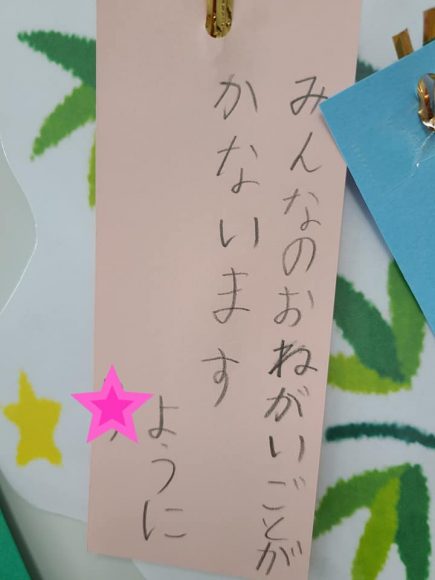 みんなのおねがいごとが
かないます
ように